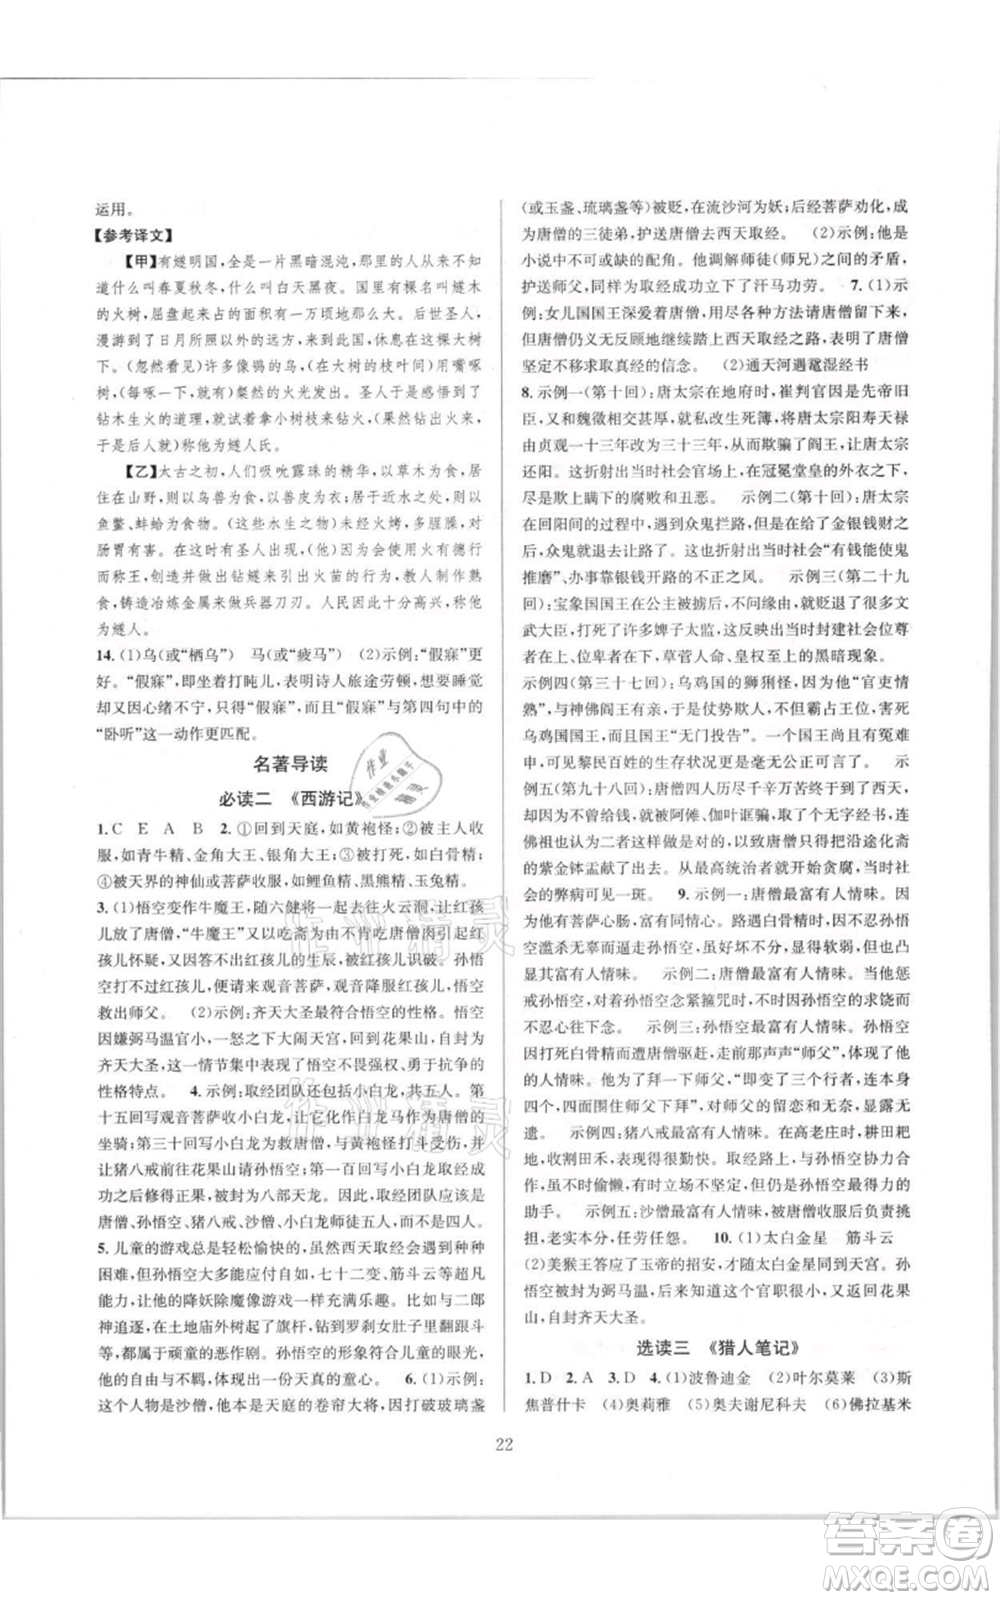 运用。
【参考译文】
【甲】有燧明国,全是一片黑暗混沌,那里的人不知
道什么叫春夏秋冬,什么叫白天黑夜。国里有棵名叫燧木
的火树,屈盘起来占地有一万顷之广。后世有圣人,
漫游到了日月所照以外的远方,来到此国,休息在这棵大树
下。(忽然看见)许多像鸮的鸟儿,(在大树的枝叶间)用嘴啄
树,(每啄一下,就有)粲然的火光发出。圣人从中感悟到了
钻木生火的道理,就试着拿小树枝来钻火,(果然钻出火来,
于是后人就)称他为燧人氏。
【乙】太古之初,人们吸吮露珠的精华,以草木为食,居
住在山野,则以鸟兽为食,以兽皮为衣;接近水边,则以
鱼鳖、蚌蛤为食物。(这些水生之物)未经火烤,多腥臊,对
肠胃有害。这时有圣人出现,(他)因为使用火有德行
而称王,创造并做出钻燧来引出火苗的行为,教人制作熟
食,铸造冶炼金属来做兵器刀刃。人民因此十分高兴,称他
为燧人。
14.(1)乌(或“栖乌”) 马(或“疲马”) (2)示例:“假寐”更
好。“假寐”是坐着打盹儿,表明诗人旅途劳顿,想要睡觉
却又因心绪不宁,只得“假寐”,“假寐”与第四句中的
“卧听”这一动作更匹配。
名著导读
必读二 《西游记》
1.C E A B 2.①回到天庭,如黄袍怪;②被主人收
服,如青牛精、金角大王、银角大王;③被打死,如白骨精;
④被天界的神仙或菩萨收服,如鲤鱼精、黑熊精、玉兔精。
3.(1)悟空变作牛魔王,随六健将一起来到火云洞,让红孩
儿放了唐僧,“牛魔王”又以吃斋为由不肯吃唐僧肉,引起红
孩儿怀疑,又因答不出红孩儿生日而被红孩儿识破。孙悟
空打不过红孩儿,便请来观音菩萨,观音降服红孩儿,悟空
救出师父。 (2)示例:齐天大圣最符合悟空的性格。悟空
因嫌弼马温官小,一怒之下大闹天宫,回到花果山,自封为
齐天大圣,这一情节集中体现了悟空不畏强权、勇于抗争的
性格特点。 4.示例:取经团队还包括小白龙,共五人。第
十五回写观音菩萨收小白龙,让它化作白龙马作为唐僧的
坐骑;第三十回写小白龙为救唐僧,与黄袍怪打斗受伤,并
让猪八戒前往花果山请孙悟空;第一百回写小白龙取经成
功之后修得正果,被封为八部天龙。因此,取经团队应该是
唐僧、孙悟空、猪八戒、沙僧、小白龙师徒五人,而不是四人。
5.儿童的游戏总是轻松愉快的,虽然西天取经会遇到种种
困难,但孙悟空大多能凭借火眼金睛、七十二变、筋斗云等
能力,让他的降妖除魔像游戏一样充满乐趣。比如与二郎
神追逐,在土地庙后树起了旗杆,钻到罗刹女肚子里施威,
都近于顽童的恶作剧。孙悟空的形象符合儿童的眼光,他
自由自在、無拘无束,体现了一种天真的童心。 6.(1)示例:
这个人物是沙僧,他本是天庭的卷帘大将,因打破玻璃盏
(或玉盏、琉璃盏等)被贬,在流沙河为妖;后经菩萨劝化,成
为唐僧的三徒弟,护送唐僧去西天取经。 (2)示例:他是
小说中不可或缺的配角。他调解师徒(师兄)之间的矛盾,
护送师父,同样为取经成功立下了汗马功劳。 7.(1)示
例:女儿国国王深爱着唐僧,以一国之富相许,希望唐僧留
下来,但唐僧毅然决然地继续踏上西天取经之路,表明了唐僧
坚定不移求取真经的信念。 (2)通天河遇鼋湿经书
8.示例一(第十回):唐太宗在地府时,崔判官因是先帝旧
臣,又和魏徵相交甚厚,就私改生死簿,将唐太宗阳寿天禄
由贞观一十三年改为三十三年,从而欺骗了阎王,让唐太宗
还阳。这折射出当时社会官场上,在冠冕堂皇的外衣之下,
尽是欺上瞒下的腐败和丑恶。 示例二(第十回):唐太宗
在回阳间的过程中,遇到众鬼拦路,但是在给了金银钱财之
后,众鬼就让路了。这也折射出当时社会“有钱能使鬼
推磨”、办事靠银钱开路的不正之风。 示例三(第二十九
回):宝象国国王在公主被掳后,不问缘由,就贬了很多文
武大臣,打死了许多婢子太监,这反映出当时封建社会位尊
者在上、位卑者在下,草菅人命、皇权至上的黑暗现象。
示例四(第三十七回):乌鸡国的狮猁怪,因为他“官吏情
熟”,与神佛阎王都有交情,于是仗势欺人,霸占王位,害死
乌鸡国国王,而国王“无门投告”。一个国王尚且有冤难
申,可见黎民百姓的生存状况更是艰难。 示例
五(第九十八回):唐僧师徒历尽千辛万苦到达灵山,却因
没有准备“人事”,就被阿傩、伽叶诓骗,得了无字经书,连
佛祖也认为二者索贿是对的,以致唐僧把沿途化斋
的紫金钵盂献了出去。最高统治者就开始贪腐,当时社会
的弊病可见一斑。 9.示例一:唐僧最富有人情味。因
为他有菩萨心肠,富有同情心。路遇弱小总会相助,因悟空
滥杀无辜而逼走孙悟空,虽然是非不分,显得软弱,但也
显其富有人情味。 示例二:唐僧最富有人情味。他虽惩
戒孙悟空,但在孙悟空念紧箍咒时,又经不住他的求饶,流露
了不忍之心,停止念下去。 示例三:孙悟空最富有人情味。孙悟空
因打死白骨精而被唐僧驱赶,走前那声声“师父”,体现了他
的人情味。他为了拜一下师父,“即变了三个行者,连本身
四个,四面围住师父下拜”,表现了他的留恋和无奈,虽走无
遗。 示例四:猪八戒最富有人情味。在高老庄时,耕田耙
地、收割田禾,表现得很勤快。取经途中,与孙悟空协力合
作,虽不时偷懒,有时立场不坚定,但仍然是孙悟空得力的
助手。 示例五:沙僧最富有人情味,被唐僧收服后负责挑
担,老实本分,任劳任怨。 10.(1)太白金星 筋斗云
(2)美猴王答应了玉帝的招安,才随太白金星来到天宫。孙
悟空被封为弼马温,后来知道了这个官职很小,就返回花果
山,自封齐天大圣。
选读三 《猎人笔记》
1.D 2.A 3.D 4.(1)波鲁迪金 (2)叶尔莫莱 (3)斯
焦普什卡 (4)奥莉雅 (5)奥夫谢尼科夫 (6)佛拉基米
22
作业精灵
作业精灵
答案卷
MXQE.COM